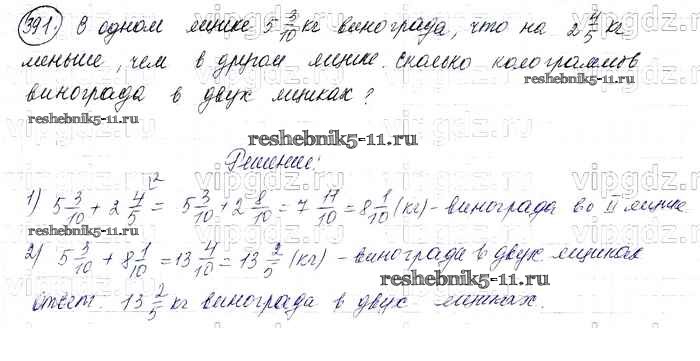 391. В одном ящике 5 3/10 кг винограда, что на 2 4/5 кг
меньше, чем в другом ящике. Сколько килограммов
винограда в двух ящиках?
reshebnik5-11.ru
reshebnik5-11.ru
Решение:
1) 5 3/10 + 2 4/5 = 5 3/10 + 2 8/10 = 7 11/10 = 8 1/10 (кг) - винограда во II ящике
2) 5 3/10 + 8 1/10 = 13 4/10 = 13 2/5 (кг) - винограда в двух ящиках
reshebnik5-11.ru
Ответ: 13 2/5 кг винограда в двух ящиках.